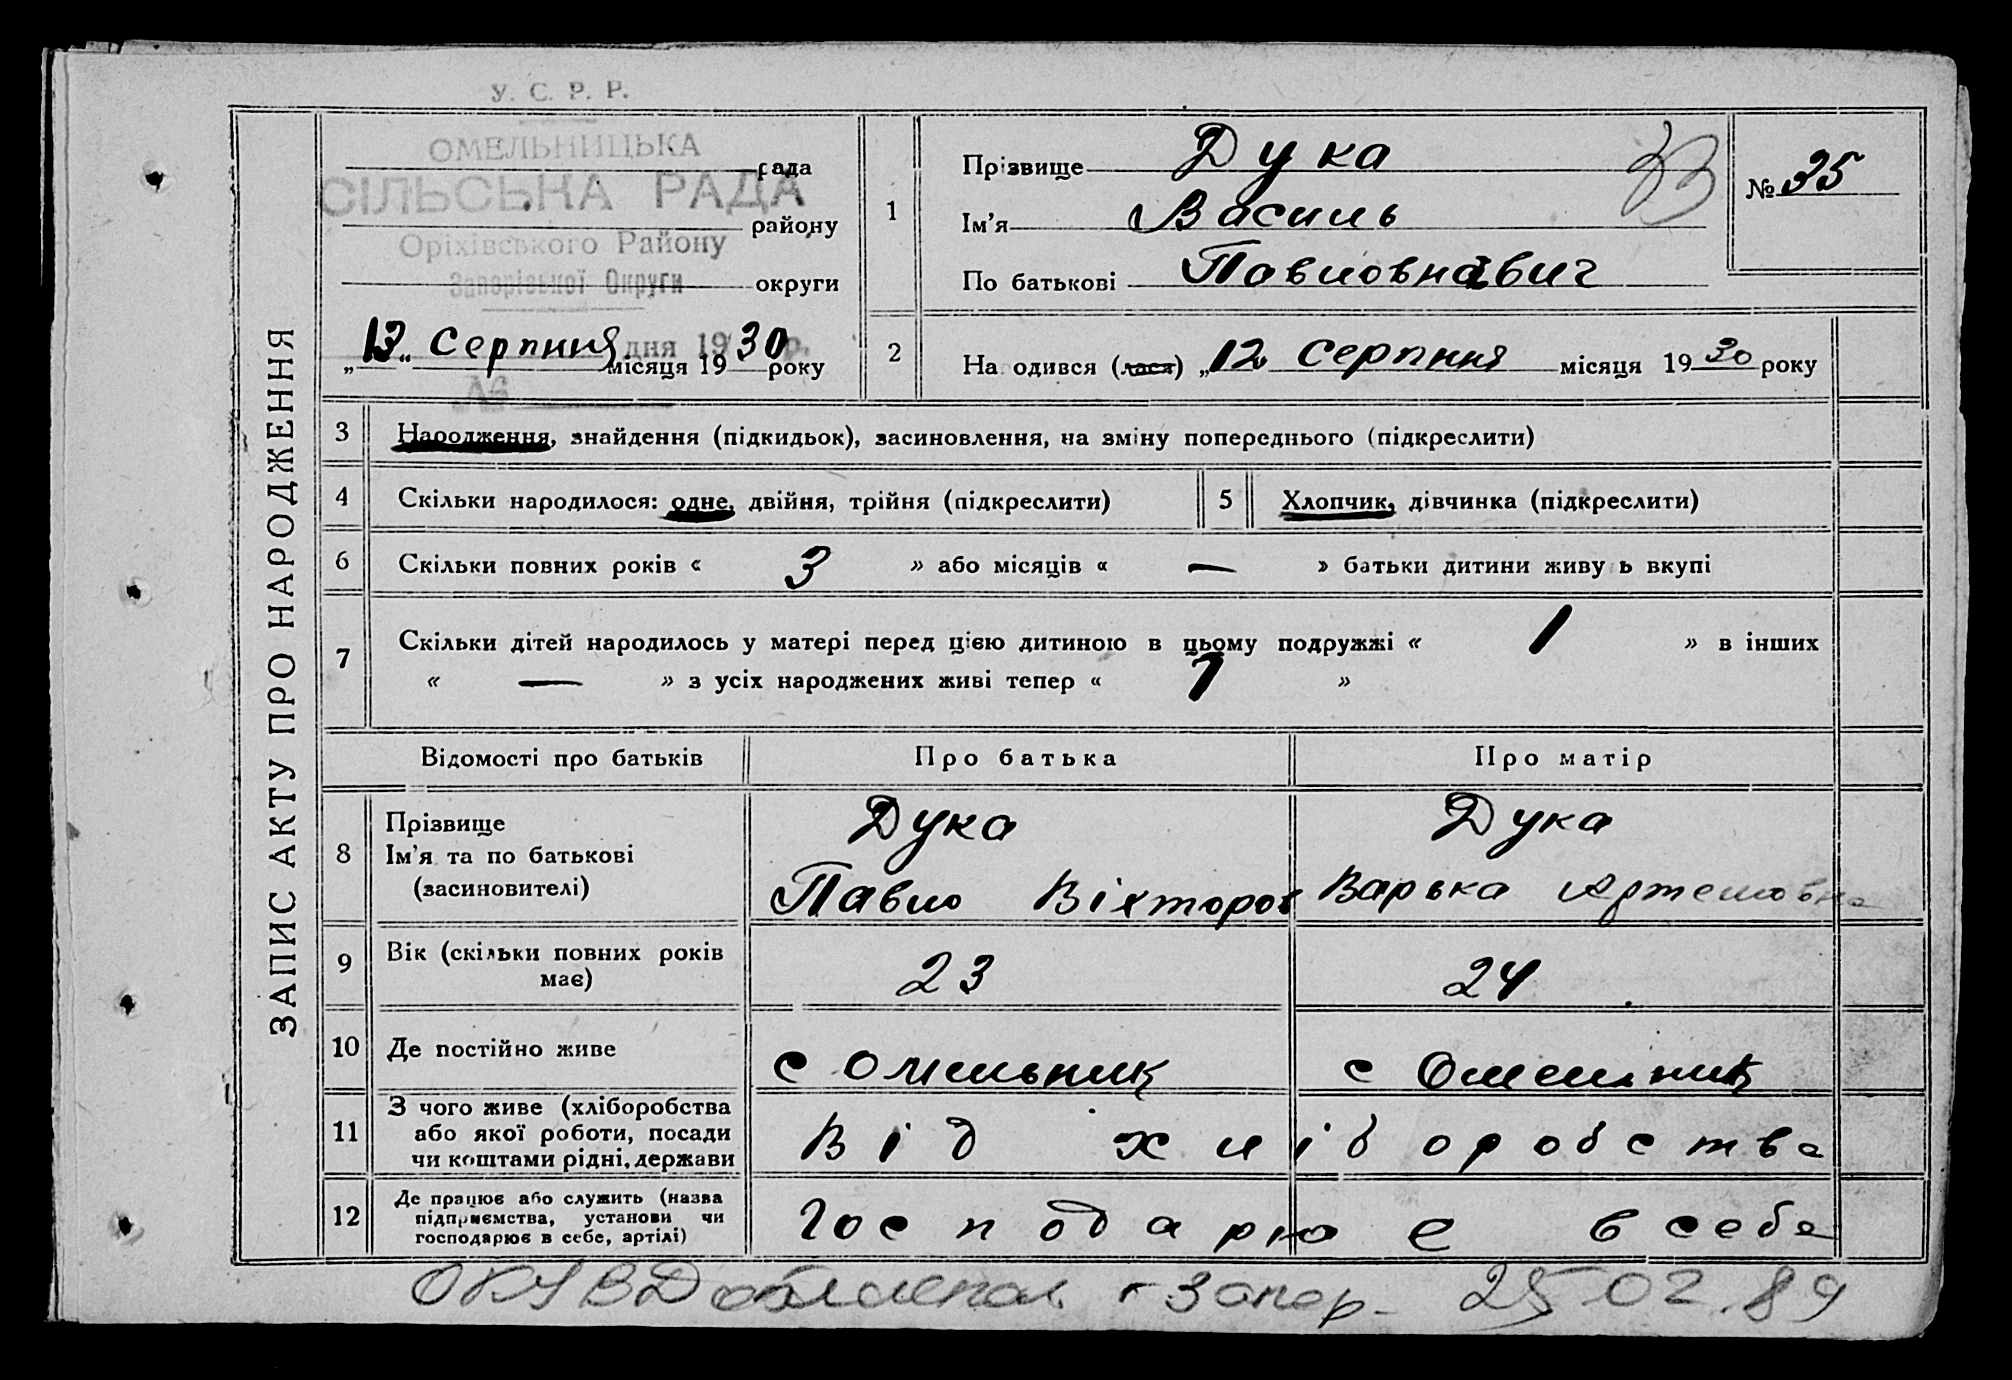 У. С. Р. Р.
ОМЕЛЬНИЦЬКА
рада
СІЛЬСЬКА РАДА
району
Оріхівського Району
Запорізької Округи
округи
дня 19 р.
„13„ Серпння місяця 1930 року
№
ЗАПИС АКТУ ПРО НАРОДЖЕННЯ
1
Прізвище Дука
Ім’я Василь
По батькові Павлович
33
№ 35
2
На одився (лася) „12„ Серпння місяця 1930 року
3 Народження, знайдення (підкидьок), засиновлення, на зміну попереднього (підкреслити)
4 Скільки народилося: одне, двійня, трійня (підкреслити)
5 Хлопчик, дівчинка (підкреслити)
6 Скільки повних років « 3 » або місяців « — » батьки дитини живу ь вкупі
7 Скільки дітей народилось у матері перед цією дитиною в цьому подружжі « 1 » в інших
« — » з усіх народжених живі тепер « 1 »
Відомості про батьків Про батька Про матір
8 Прізвище
Ім’я та по батькові
(засиновителі)
Дука
Павло Вікторов
Дука
Варька Артемовна
9 Вік (скільки повних років
має)
23 24
10 Де постійно живе с Омельник с Омельник
11 З чого живе (хліборобства
або якої роботи, посади
чи коштами рідні, держави
Від хліборобства
12 Де працює або служить (назва
підприємства, установи чи
господарює в себе, артілі)
Господарює в себе
г Запор- 25 02.89